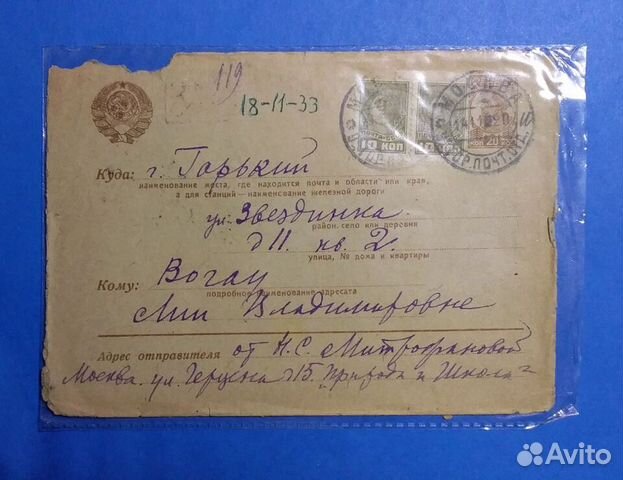 119
18-11-33
МОСКВА
10 КОП
10 КОП
КОП 20
Куда: г. Горький
наименование места, где находится почта и области или края,
а для станций—наименование железной дороги
ул. Звездинка
район, село или деревня
д 11 кв. 2.
улица, № дома и квартиры
Кому: Вогау
подробное наименование адресата
Лии Владимировне
Адрес отправителя от Н.С. Митрофановой
Москва. ул. Герцена д 5. "Природа и Школа"
Avito